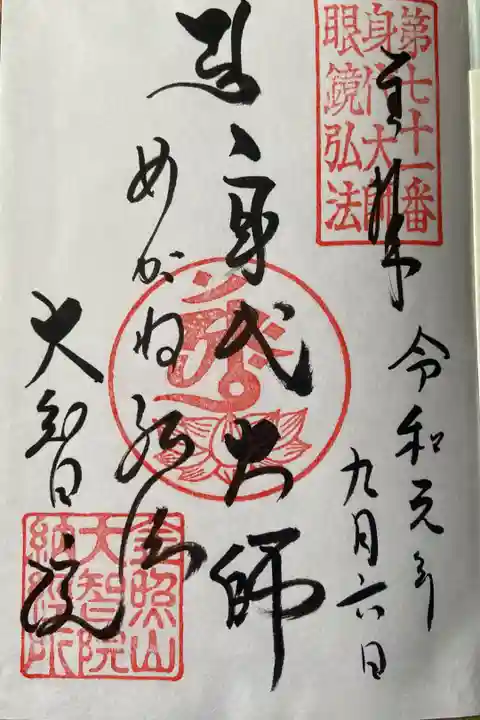 第七十一番
身代大師
眼鏡弘法
奉拝
令和元年
九月六日
身代大師
めがね弘法
大智院
金照山
大智院
納経所